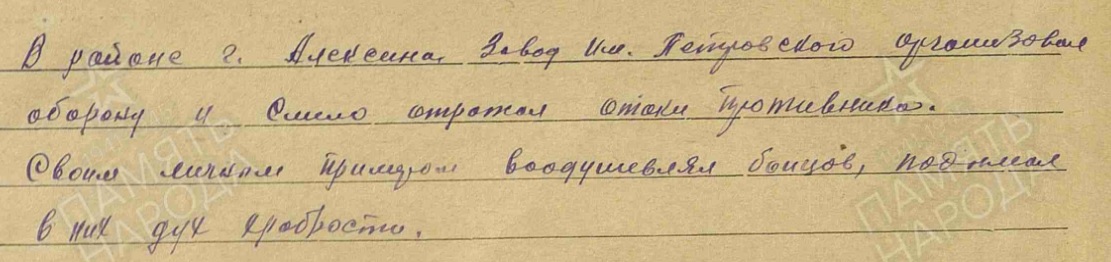 В районе г. Алексина, Завод им. Петровского организовал
оборону и смело отражал атаки противника.
Своим личным примером воодушевлял бойцов, поднимал
в них дух храбрости.
ПАМЯТЬ НАРОДА
ПАМЯТЬ НАРОДА